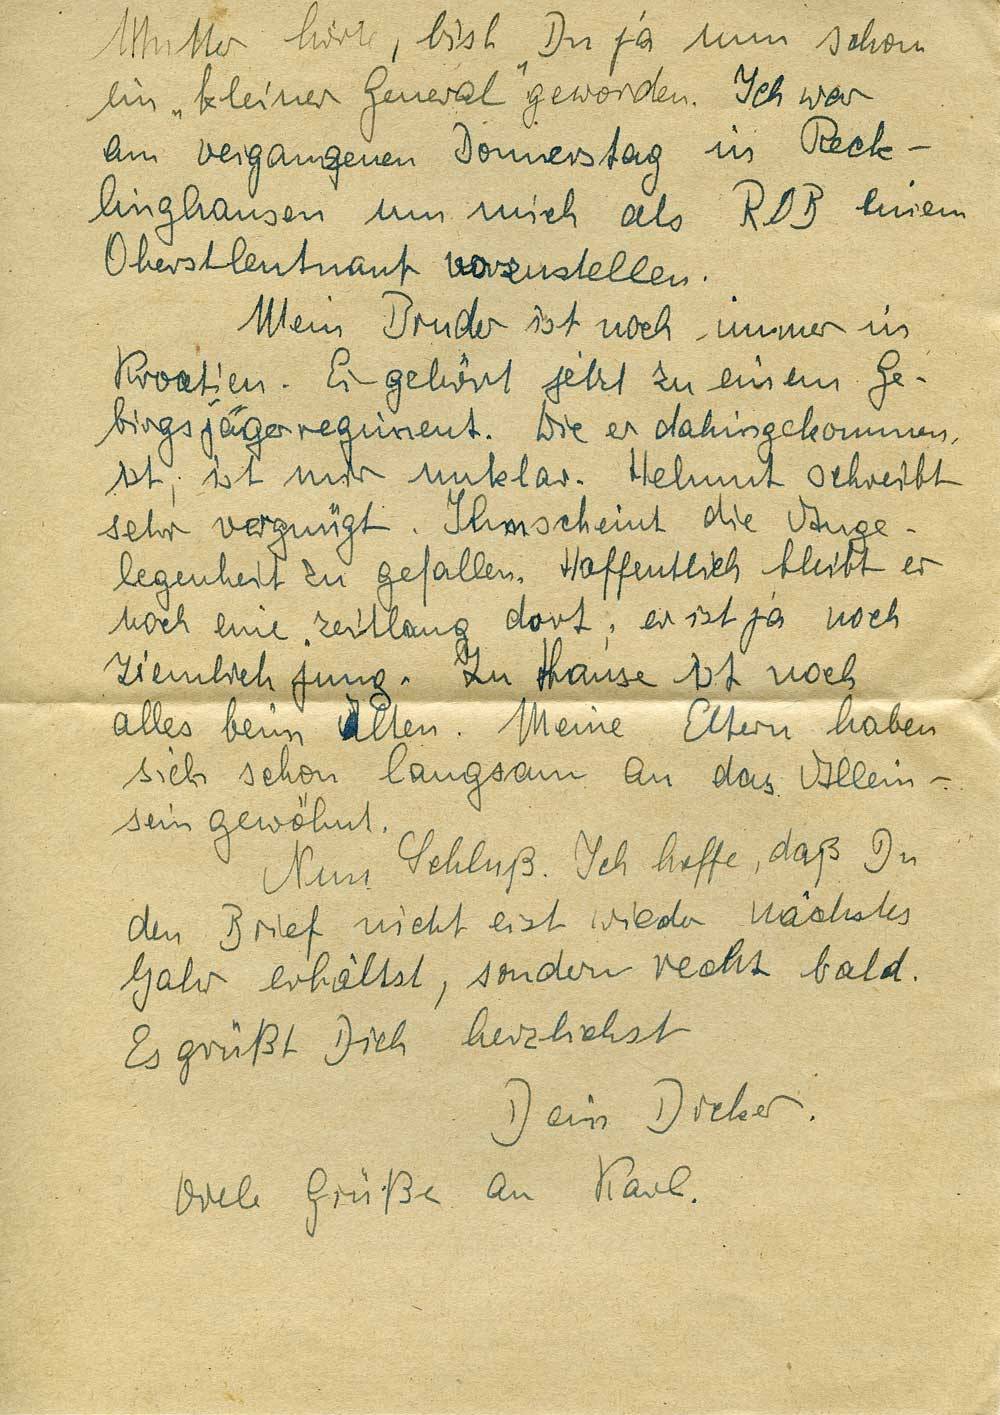 Mutter hörte, bist Du ja nun schon
ein „kleiner General" geworden. Ich war
am vergangenen Donnerstag in Reck-
linghausen um mich als ROB einem
Oberstleutnant vorzustellen.
Mein Bruder ist noch immer in
Kroatien. Er gehört jetzt zu einem Ge-
birgsjägerregiment. Wie er dahingekommen
ist, ist mir unklar. Helmut schreibt
sehr vergnügt. Ihm scheint die Ange-
legenheit zu gefallen. Hoffentlich bleibt er
noch eine zeitlang dort, er ist ja noch
ziemlich jung. Zu Hause ist noch
alles beim Alten. Meine Eltern haben
sich schon langsam an das Allein-
sein gewöhnt.
Nun Schluß. Ich hoffe, daß Du
den Brief nicht erst wieder nächstes
Jahr erhältst, sondern recht bald.
Es grüßt Dich herzlichst
Dein Dicker.
Viele Grüße an Karl.